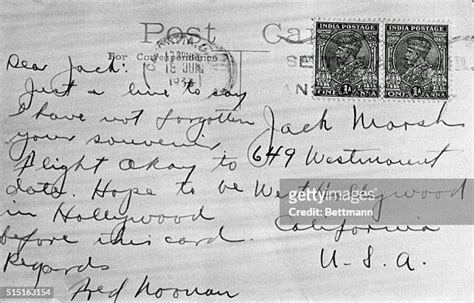 Post Card
For Correspondence
INDIA POSTAGE
INDIA POSTAGE
ONE 1A ANNA
ONE 1A ANNA
15 JUN
Dear Jack:
Just a line to say
I have not forgotten
your souvenir
flight Okay to
date. Hope to be
in Hollywood
before this card.
Regards
Fred Noonan
Jack Marsh
649 Westmount
West Hollywood
California
U.S.A.
gettyimages
Bettmann
515163154